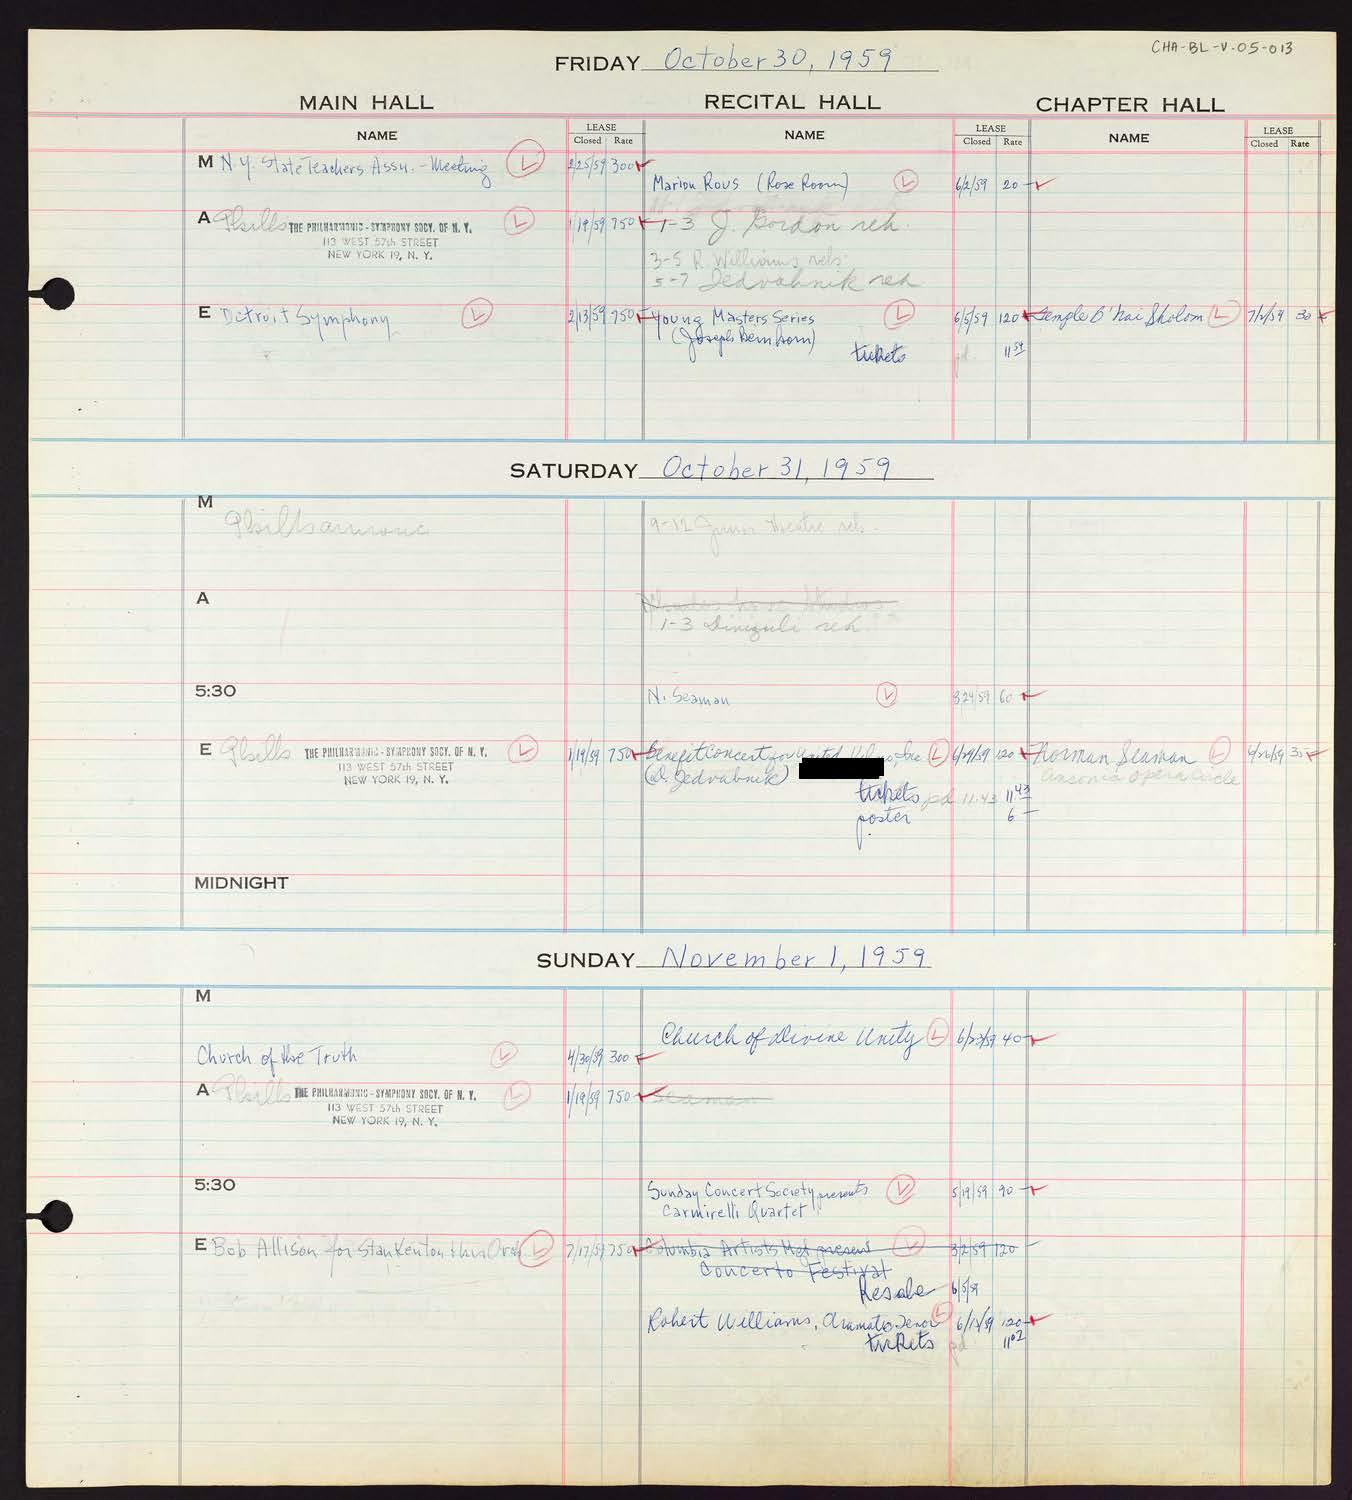 CHA-BL-V-05-013
FRIDAY October 30, 1959
MAIN HALL RECITAL HALL CHAPTER HALL
NAME LEASE NAME LEASE NAME LEASE
Closed Rate Closed Rate Closed Rate
M N.Y. State Teachers Assn. - Meeting L 2/25/59 300
Marion Rous (Rose Room) L 6/2/59 20 -
A Philh THE PHILHARMONIC - SYMPHONY SOCY. OF N. Y. L 1/19/59 750 1-3 J. Gordon reh.
113 WEST 57th STREET
NEW YORK 19, N. Y.
3-5 R. Williams reh.
5-7 Jedvabnik reh
E Detroit Symphony L 2/13/59 750 Young Masters Series L 6/5/59 120 Temple B'nai Sholom L 7/1/59 30
(Joseph Bernhorn)
tickets pd. 11 59
SATURDAY October 31, 1959
M
Philharmonic 9-12 Junior Theatre reh.
A
1-3 reh.
5:30
N. Seaman L 8/24/59 60
E Philh THE PHILHARMONIC - SYMPHONY SOCY. OF N. Y. L 1/19/59 750 Benefit Concert for United Inc L 6/29/59 120 Norman Seaman L 35
113 WEST 57th STREET
NEW YORK 19, N. Y.
(D. Jedvabnik) Ansonia Opera Circle
tickets pd 11.43 11 43
poster 6 -
MIDNIGHT
SUNDAY November 1, 1959
M
Church of Divine Unity L 6/23/59 40 -
Church of the Truth L 4/30/59 300
A Philh THE PHILHARMONIC - SYMPHONY SOCY. OF N. Y. L 1/19/59 750 Seaman
113 WEST 57th STREET
NEW YORK 19, N. Y.
5:30
Sunday Concert Society presents L 5/19/59 90
Carmirelli Quartet
E Bob Allison for Stan Kenton & his Orch. L 7/17/59 750 Columbia Artists Mgt present L 3/2/59 120 -
Concerto Festival
Resale 6/5/59
Robert Williams, dramatic tenor L 120
tickets pd 11 02